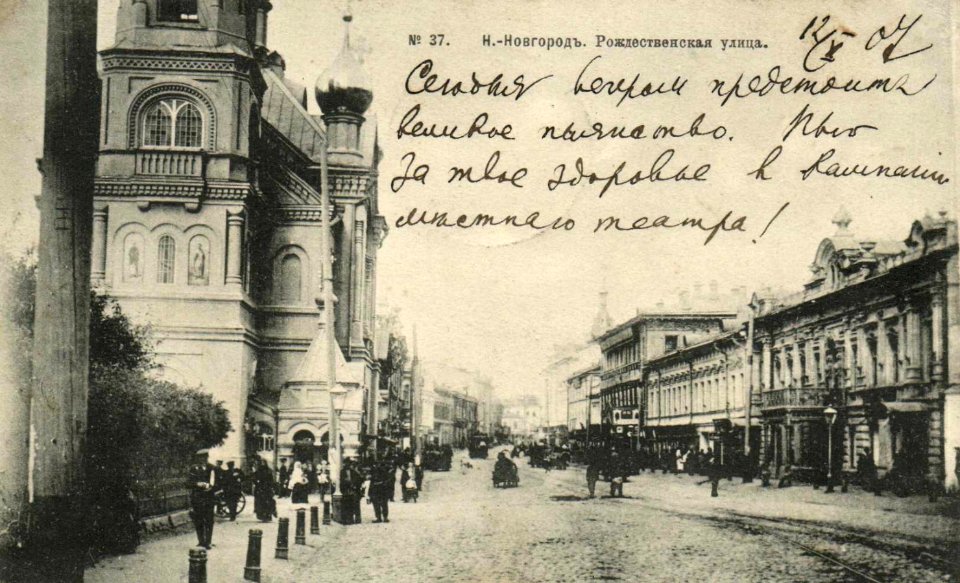 № 37. Н.-Новгородъ. Рождественская улица.
12/X 07
Сегодня вечером предстоита
великое пьянство. Пью
за твое здоровье в кампании
мѣстнаго театра!